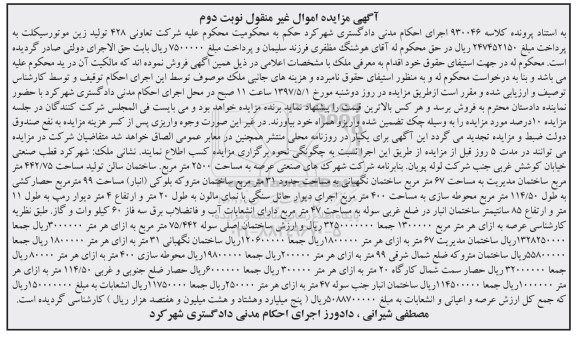 آگهی مزایده اموال غیر منقول نوبت دوم
به استناد پرونده کلاسه ۹۳۰۰۴۶ اجرای احکام مدنی دادگستری شهرکرد حکم به محکومیت محکوم علیه شرکت تعاونی ۴۲۸ تولید زین موتورسیکلت به
پرداخت مبلغ ۲۴۷۴۵۲۱۵۰ ریال در حق محکوم له آقای هوشنگ مظفری فرزند سلیمان و پرداخت مبلغ ۷۵۰۰۰۰۰ ریال بابت حق الاجرای دولتی صادر گردیده
است. محکوم له در جهت استیفای حقوق خود اقدام به معرفی ملک با مشخصات اعلامی در ذیل همین آگهی فروش نموده اند که مالکیت آن در ید محکوم علیه
می باشد و بنا به درخواست محکوم له و به منظور استیفای حقوق نامبرده و هزینه های جانبی ملک موصوف توسط این اجرای احکام توقیف و توسط کارشناس
توصیف و ارزیابی شده و مقرر است ازطریق مزایده در روز دوشنبه مورخ ۱۳۹۷/۵/۱ ساعت ۱۱ صبح در محل اجرای احکام مدنی دادگستری شهرکرد با حضور
نماینده دادستان محترم به فروش برسد و هر کس بالاترین قیمت را پیشنهاد نماید برنده مزایده خواهد بود و می بایست فی المجلس شرکت کنندگان در جلسه
مزایده ۱۰درصد مورد مزایده را به وسیله چک تضمین شده واریز و همراه خود بیاورند. در غیر این صورت وجوه واریزی پس از کسر هزینه مزایده به نفع صندوق
دولت ضبط و مزایده تجدید می گردد این آگهی برای یکبار در روزنامه محلی منتشر همچنین در معابر عمومی الصاق خواهد شد متقاضیان شرکت در مزایده
می توانند در مدت ۵ روز قبل از مزایده از طریق این اجرا نسبت به چگونگی نحوه برگزاری مزایده کسب اطلاع نمایند. نشانی ملک: شهرکرد قطب صنعتی
خیابان کوشش غربی جنب شرکت لوله پویان. بنابرنامه شرکت شهرک های صنعتی عرصه به مساحت ۲۵۰۰ متر مربع. ساختمان سالن تولید مساحت ۴۴۲/۷۵ متر
مربع ساختمان مدیریت به مساحت ۶۷ متر مربع ساختمان نگهبانی به مساحت حدود ۳۱ متر مربع ساختمان متروکه بلوکی (انبار) مساحت ۹۹ مترمربع حصارکشی
به طول ۱۱۴/۵۰ متر مربع محوطه سازی به مساحت ۴۰۰ متر مربع اجرای دیوار حائل سنگی با نمای مالون به طول ۲۰ متر و ارتفاع ۴ متر دیوار رمپ به طول ۱۱
متر و ارتفاع ۸۵ سانتیمتر ساختمان انبار در ضلع غربی سوله به مساحت ۴۷ متر مربع دارای انشعابات آب و فاضلاب برق سه فاز ۶۰ کیلو وات و گاز. طبق نظریه
کارشناسی عرصه به ازای هر متر مربع ۱۳۰۰۰۰۰ جمعا ۳۲۵۰۰۰۰۰۰۰ریال و ارزش ساختمان اصلی سوله ۷۵/۴۴۲ متر مربع به ازای هر متر ۳۰۰۰۰۰۰ریال جمعا
۱۳۲۸۲۵۰۰۰۰ریال ساختمان مدیریت ۶۷ متر به ازای هر متر ۱۸۰۰۰۰۰ریال جمعا ۱۲۰۶۰۰۰۰۰ریال ساختمان نگهبانی ۳۱ متر به ازای هر متر ۱۸۰۰۰۰۰ ریال جمعا
۵۵۸۰۰۰۰۰ریال ساختمان متروکه ضلع شمال شرقی ۹۹ متر به ازای هر متر ۲۰۰۰۰۰ریال جمعا ۱۹۸۰۰۰۰۰ریال محوطه سازی ۴۰۰ متر به ازای هر متر ۸۰۰۰۰ریال
جمعا ۳۲۰۰۰۰۰۰ریال حصار سمت شمال کارگاه ۲۰ متر به ازای هر متر ۳۰۰۰۰۰ ریال جمعا ۶۰۰۰۰۰۰ریال حصار ضلع جنوبی و غربی ۱۱۴/۵۰ متر به ازای هر
متر ۱۰۰۰۰۰۰ریال جمعا ۱۱۴۵۰۰۰۰۰ریال ساختمان انبار جنب سوله ۴۷ متر به ازای هر متر ۲۵۰۰۰۰ریال جمعا ۱۱۷۵۰۰۰۰ریال انشعابات به مبلغ ۱۵۰۰۰۰۰۰۰ریال
که جمع کل ارزش عرصه و اعیانی و انشعابات به مبلغ ۵۰۸۸۷۰۰۰۰۰ریال ( پنج میلیارد وهشتاد و هشت میلیون و هفتصد هزار ریال ) کارشناسی گردیده است.
مصطفی شیرانی ، دادورز اجرای احکام مدنی دادگستری شهرکرد